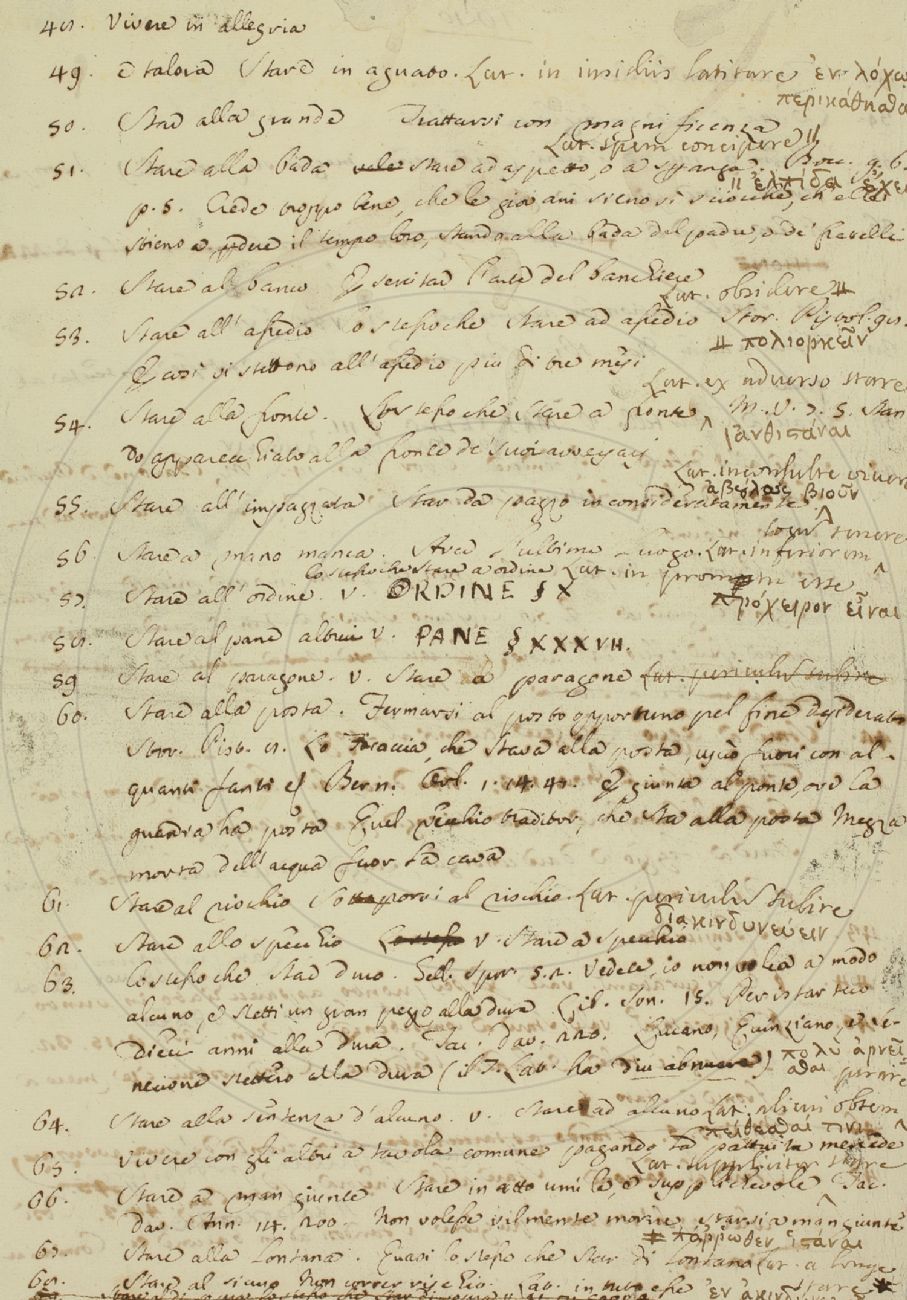 48. Vivere in allegria
49. e talora Stare in aguato. Lat. in insidiis latitare ἐν λόχῳ
περικάθησθαι
50. Star alla grande Trattarsi con magnificenza
Lat. spem concipere //
51. Stare alla bada vale stare ad aspetto, o a speranza. Bocc. g. 6.
// ἐλπίδα ἔχειν
p. 5. Crede troppo bene, che le giovani sieno sì sciocche, ch elle
stieno a perdere il tempo loro, stando alla bada del padre, o de' fratelli
52. Stare al banco Esercitar l'arte del banchiere
Lat. obsidere #
53. Stare all' assedio lo stesso che stare ad assedio Stor. Pistol. 90.
# πολιορκεῖν
E così vi stettono all'assedio più di tre mesi
Lat. ex adverso stare
54. Stare alla fronte. Lo stesso che stare a fronte M. V. 7. 5. Stan
ἀνθιστάναι
do apparecchiato alla fronte de' suoi avversarj
Lat. inconsulte vivere
ἀβούλως βιοῦν
55. Stare all'impazzata Star da pazzo inconsideratamente
locum tenere
56. Stare a mano manca. Aver l'ultimo luogo. Lat. inferiorem
lo stesso che stare a ordine Lat. in promptu esse
57. Stare all'ordine. V. ORDINE § X
πρόχειρον εἶναι
58. Stare al pane altrui V. PANE § XXXVII.
59 Stare al paragone. V. Stare a paragone Lat. periculum subire
60. Stare alla posta. Fermarsi al posto opportuno pel fine desiderato
Stor. Pist. 8. Lo Focaccia, che stava alla posta, uscìo fuori con al-
quanti fanti Bern. Orl. 1. 14. 48. E giunta al ponte, ove la
guardia ha posta Quel vecchio traditor, che sta alla posta Mezza
morta dell'acqua fuor la cava
61. Stare al rischio Sottoporsi al rischio. Lat. periculum subire
διακινδυνεύειν
62. Stare allo specchio Lo stesso V. Stare a specchio
63. lo stesso che star duro. Gell. Spor. 5. 2. Vedete, io non volea a modo
alcuno, e stetti un gran pezzo alla dura Lib. Son. 15. Per istar teco
dieci anni alla dura. Tac. Dav. 220. Lucano, Quinziano, e Se-
necione stettero alla dura (il T. Lat. ha diu abnuere) πολὺ ἀρνεῖ
σθαι
64. Stare alla sentenza d'alcuno. V. Stare ad alcuno Lat. alicui obtem
perare
πείθεσθαί τινι
65. Vivere con gli altri a tavola comune pagando la pattuita mercede
Lat. suppliciter stare
66. Stare a man giunte Stare in atto umile, e supplichevole Tac.
Dav. Ann. 14. 200. Non volesse vilmente morire, e starsi a man giunte
# πόῤῥωθεν ἱστάναι
67. Stare alla lontana. Quasi lo stesso che star di lontano Lat. a longe
stare #
68. Stare al sicuro Non correr rischio. Lat. in tuto esse ἐν ἀκινδύνῳ